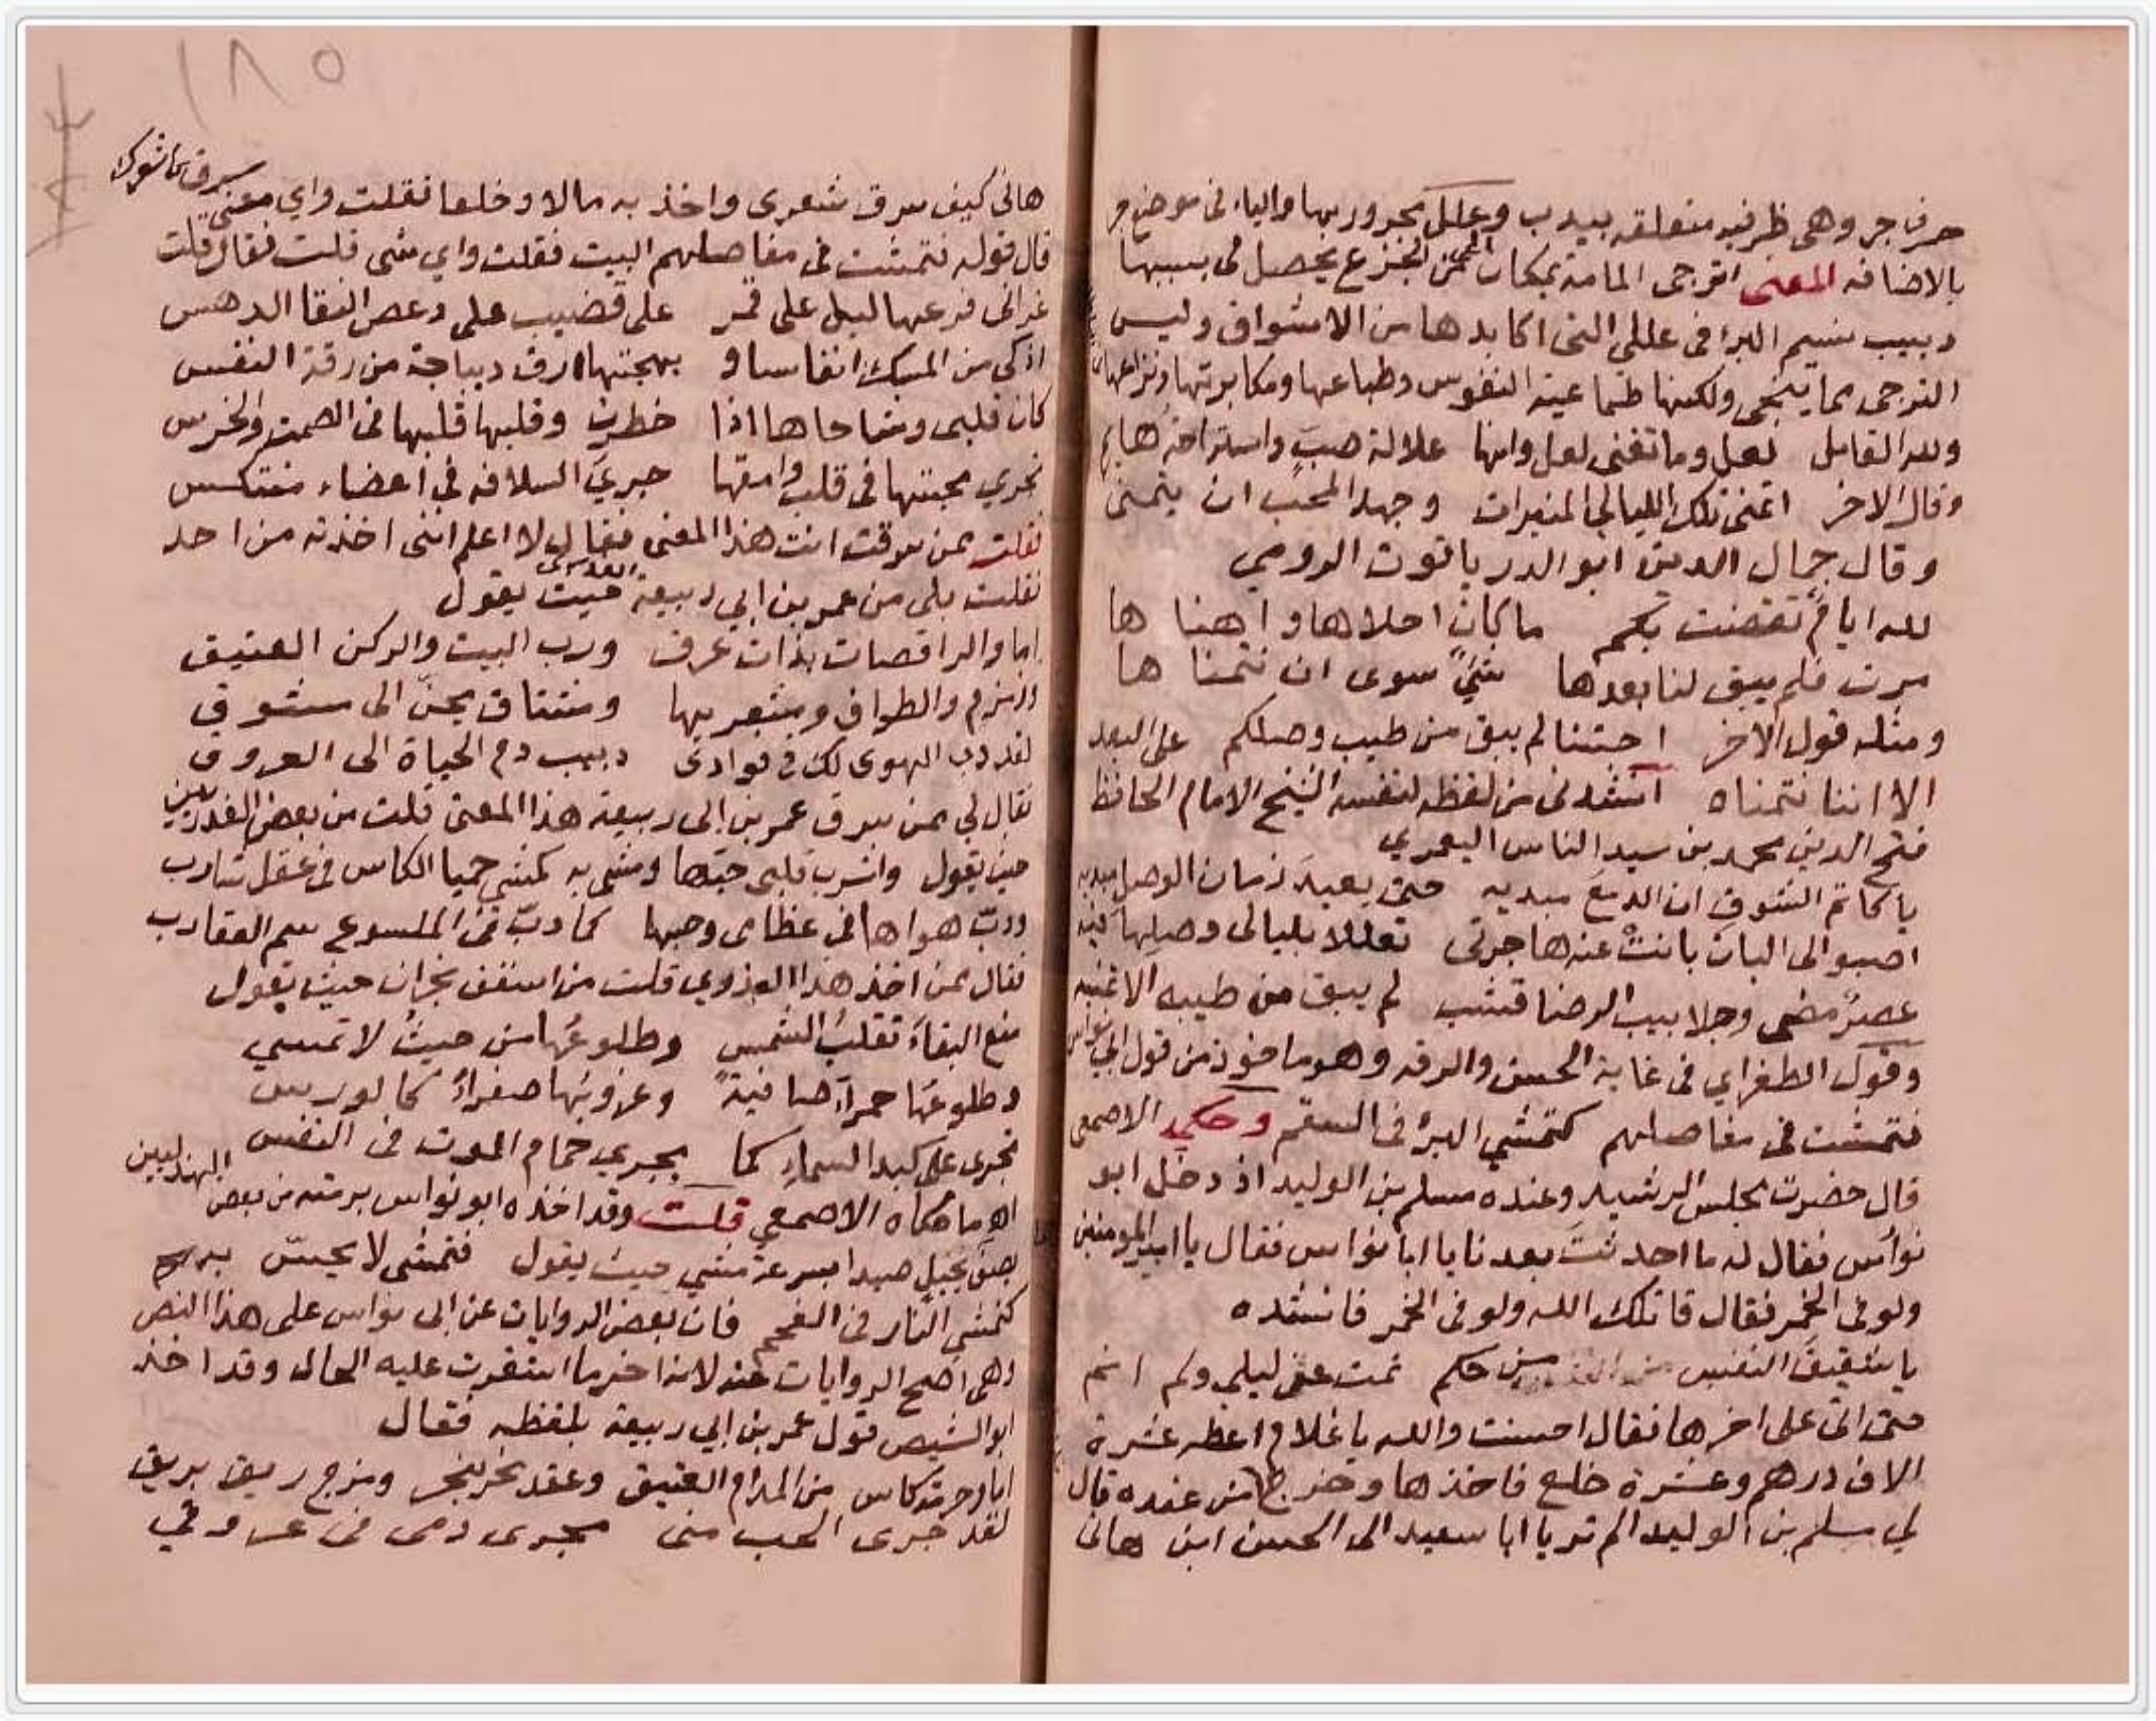 حرف جر وهى ظرفيه متعلقه بيدب وعللى مجرور بها والياء فى موضع جر
بالاضافه المعنى اترجى المامة بمكان الجزع يحصل لى بسببها
دبيب نسيم البرا فى عللى التى اكابدها من الاشواق وليس
الترجى مما ينجى ولكنها طماعية النفوس وطباعها ومكابرتها ونزاعها
ولله القايل لعل وما تغنى لعل وانها علالة صب واستراحة
وقال الاخر اتمنى تلك الليالى المنيرات وجهد المحب ان يتمنى
وقال جمال الدين ابو الدر ياقوت الرومي
لله ايام تقضت بكم ما كان احلاها واهناها
مرت فلم يبق لنا بعدها شئ سوى ان نتمناها
ومثله قول الاخر احبتنا لم يبق من طيب وصلكم على البعد
الا اننا نتمناه انشدنى من لفظه لنفسه الشيخ الامام الحافظ
فتح الدين محمد بن سيد الناس اليعمري
يا كاتم الشوق ان الدمع مبديه حتى يعيد زمان الوصل مبديه
اصبو الى البان بانت عنه هاجرتى تعللا بليالى وصلها فيه
عصر مضى وجلابيب الرضا قشب لم يبق من طيبه الا تمنيه
وقول الطغراي فى غاية الحسن والرقه وهو ماخوذ من قول ابي نواس
فتمشت فى مفاصلهم كتمشي البرء فى السقم وحكى الاصمعى
قال حضرت مجلس الرشيد وعنده مسلم بن الوليد اذ دخل ابو
نواس فقال له ما احدثت بعدنا يا ابا نواس فقال يا امير المومنين
ولو فى الخمر فقال قاتلك الله ولو فى الخمر فانشده
يا شقيق النفس من حكم نمت عن ليلي ولم انم
حتى اتى على اخرها فقال احسنت والله يا غلام اعطه عشرة
الاف درهم وعشرة خلع فاخذها وخرج من عنده قال
لي مسلم بن الوليد الم تر يا ابا سعيد الى الحسن ابن هانى
١٨٥
هانى كيف سرق شعرى واخذ به مالا وخلعا فقلت واي معنى سرق
قال قوله فتمشت فى مفاصلهم البيت فقلت واي شى قلت فقال قلت
غرانى فرعها ليل على قمر على قضيب على دعص النقا الدهس
اذكى من المسك انفاسا وبهجتها ارق ديباجة من رقة النفس
كان قلبى وشاحاها اذا خطرت وقلبها قلبها فى الصمت والخرس
تجري محبتها فى قلب وامقها جري السلافه في اعضاء منتكس
فقلت ممن سرقت انت هذا المعنى فقال لا اعلم اننى اخذته من احد
فقلت بلى من عمر بن ابي ربيعة حيث يقول
اما والراقصات بذات عرق ورب البيت والركن العتيق
وزمزم والطواف ومشعريها ومشتاق يحن الى مشوق
لقد دب الهوى لك في فوادى دبيب دم الحياة الى العروق
فقال لي ممن سرق عمر بن ابى ربيعة هذا المعنى قلت من بعض العذريين
حيث يقول واشرب قلبى حبها ومشى به كمشي حميا الكاس فى عقل شارب
ودب هواها فى عظامى وحبها كما دب فى الملسوع سم العقارب
فقال ممن اخذ هذا العذري قلت من اسقف نجران حيث يقول
منع البقاء تقلب الشمس وطلوعها من حيث لا تمسي
وطلوعها حمراء صافية وغروبها صفراء كالورس
تجرى على كبد السماء كما يجري حمام الموت فى النفس
اه ما حكاه الاصمعي قلت وقد اخذه ابو نواس برمته من بعض الهذليين
حيث يقول فتمشى لا يحس به
كتمشي النار فى الفحم فان بعض الروايات عن ابى نواس على هذا النص
وهى اصح الروايات عنه لانه اخر ما استقرت عليه الحال وقد اخذ
ابو الشيص قول عمر بن ابي ربيعة بلفظه فقال
من المدام العتيق وعقد نحر بنحر ومزج ريق بريق
لقد جرى الحب منى مجرى دمى فى عروقي